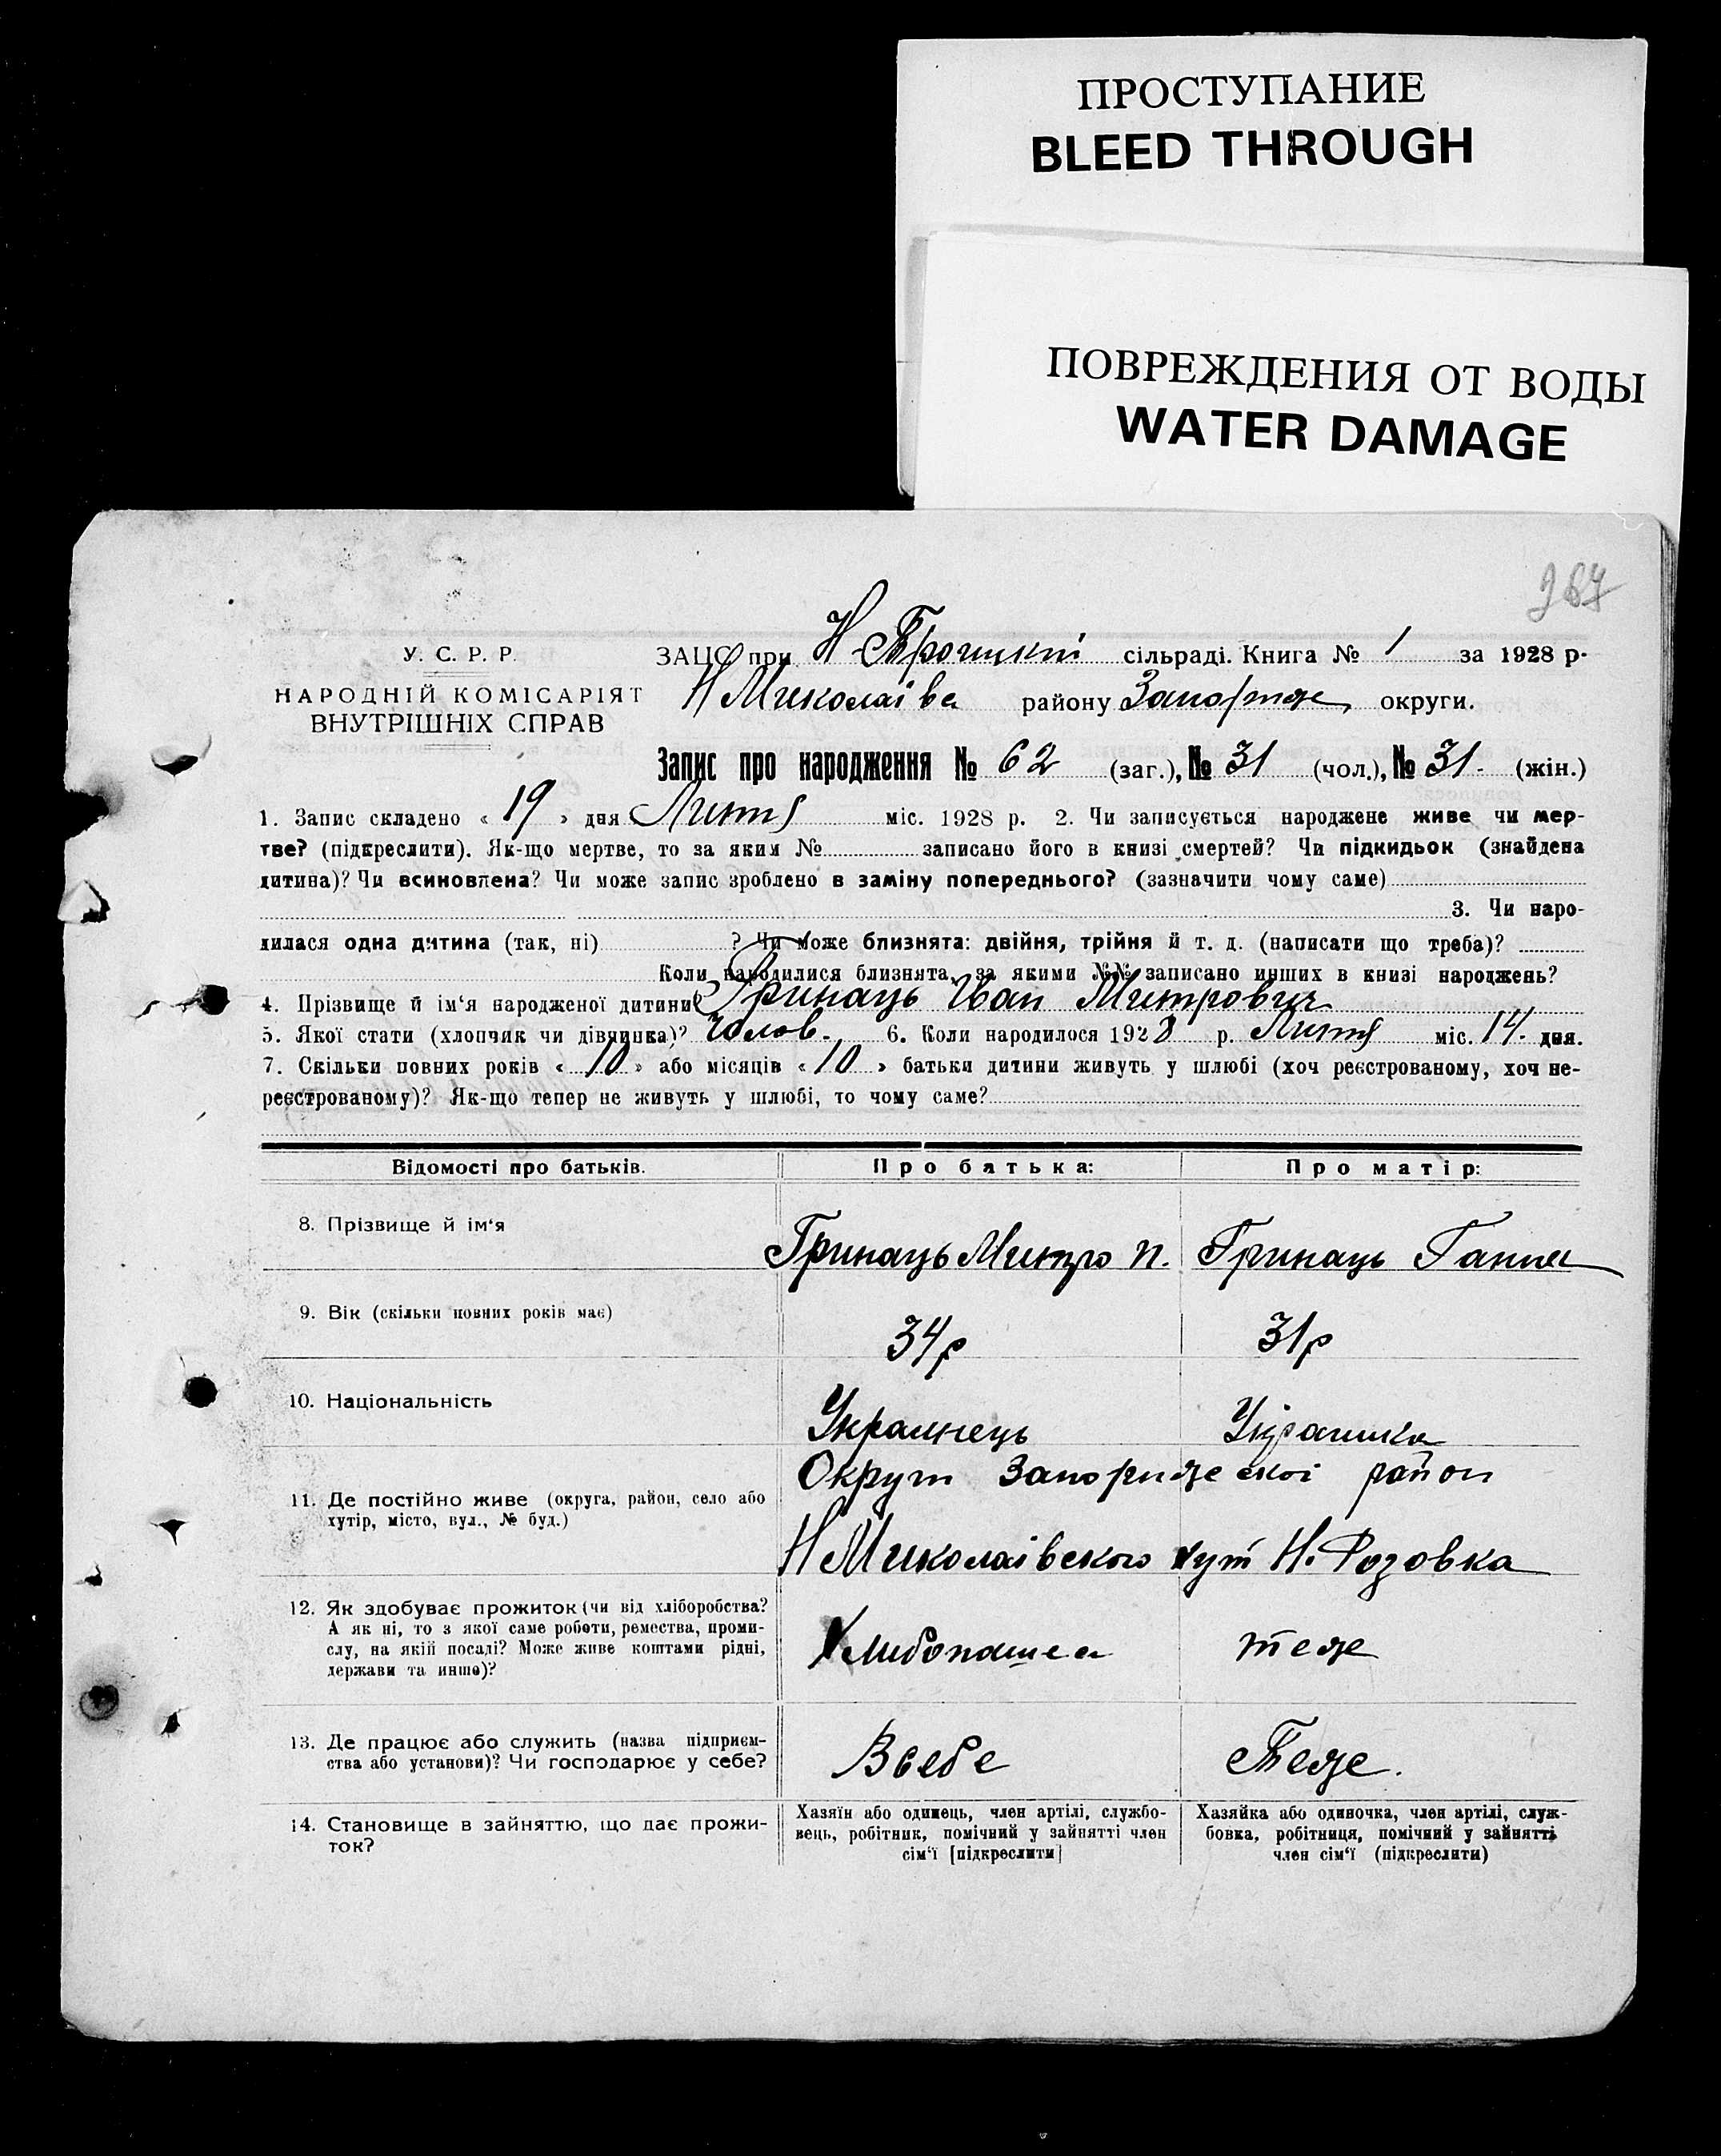 ПРОСТУПАНИЕ
BLEED THROUGH
ПОВРЕЖДЕНИЯ ОТ ВОДЫ
WATER DAMAGE
267
У. С. Р. Р.
НАРОДНІЙ КОМІСАРІЯТ
ВНУТРІШНІХ СПРАВ
ЗАЦС при Н-Троицкій сільраді. Книга № 1 за 1928 р.
Н Миколаівс району Запоріже округи.
Запис про народження № 62 (заг.), № 31 (чол.), № 31- (жін.)
1. Запис складено « 19 » дня Лют міс. 1928 р. 2. Чи записується народжене живе чи мер-
тве? (підкреслити). Як-що мертве, то за яким № записано його в книзі смертей? Чи підкидьок (знайдена
дитина)? Чи всиновлена? Чи може запис зроблено в заміну попереднього? (зазначити чому саме)
3. Чи наро-
дилася одна дитина (так, ні) ? Чи може близнята: двійня, трійня й т. д. (написати що треба)?
Коли народилися близнята, за якими №№ записано инших в книзі народжень?
4. Прізвище й ім‘я народженої дитини Гринаць Иван Митрович
5. Якої стати (хлопчик чи дівчинка)? Чолов. 6. Коли народилося 1928 р. Лют міс. 14. дня.
7. Скільки повних років « 10 » або місяців « 10 » батьки дитини живуть у шлюбі (хоч реєстрованому, хоч не-
реєстрованому)? Як-що тепер не живуть у шлюбі, то чому саме?
Відомості про батьків. Про батька: Про матір:
8. Прізвище й ім‘я Гринаць Митро П. Гринаць Ганна
9. Вік (скільки повних років має) 34р 31р
10. Національність Украінець Украинка
Округи Запорижескоі район
11. Де постійно живе (округа, район, село або
хутір, місто, вул., № буд.)
Н Миколаівского хут Н. Розовка
12. Як здобуває прожиток (чи від хліборобства?
А як ні, то з якої саме роботи, ремества, проми-
слу, на якій посаді? Може живе коштами рідні,
держави та инше)?
Хлибопашец теже
13. Де працює або служить (назва підприєм-
ства або установи)? Чи господарює у себе?
Всебе Теже.
14. Становище в зайняттю, що дає прожи-
ток?
Хазяїн або одинець, член артілі, службо-
вець, робітник, помічний у зайнятті член
сім‘ї [підкреслити]
Хазяйка або одиночка, член артілі, служ-
бовка, робітниця, помічний у зайнятті
член сім‘ї (підкреслити)